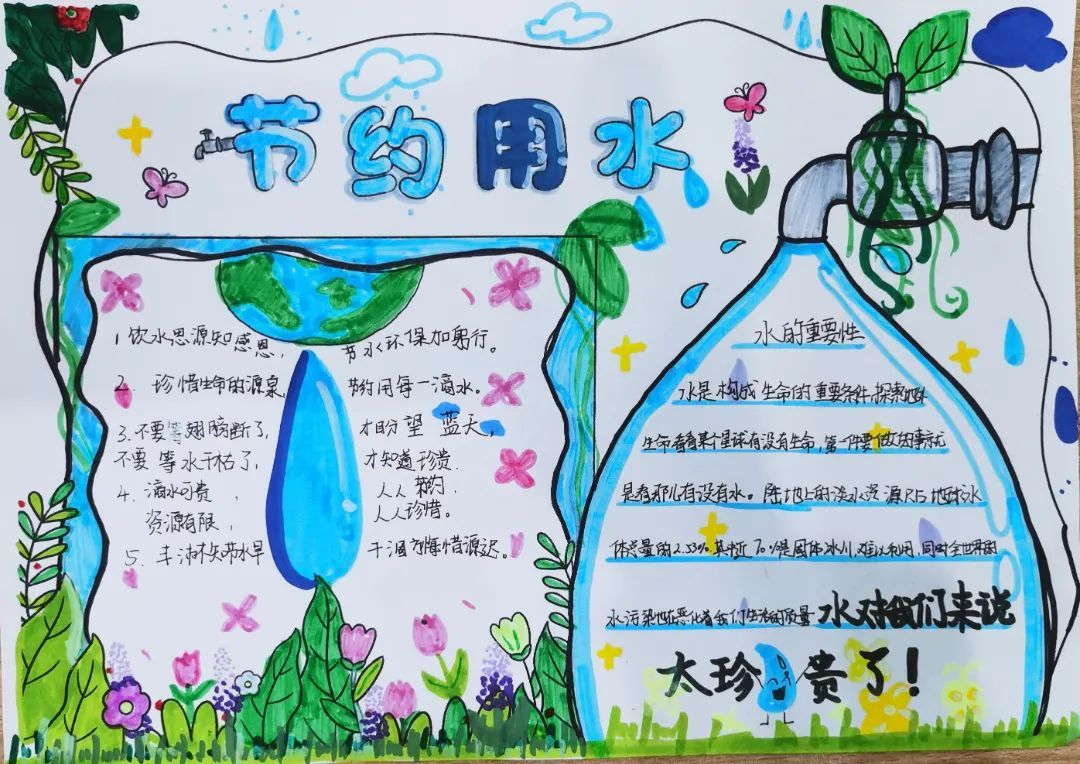 节约用水
1 饮水思源知感恩,
节水环保加躬行。
2 珍惜生命的源泉
节约用每一滴水。
3.不要等翅膀断了,
才盼望 蓝天,
不要 等水干枯了,
才知道珍贵.
4. 滴水可贵,
人人节约.
资源有限,
人人珍惜。
5. 丰沛不知节水早
干涸方悔惜源迟。
水的重要性
水是构成生命的重要条件,探索地外
生命看看某个星球有没有生命,第一件要做的事就
是看那儿有没有水。陆地上的淡水资源只占地球水
体总量的2.53%其中近70%是固体冰川,难以利用,同时全世界的
水污染也在恶化着我们生活的质量 水对我们来说
太珍贵了!